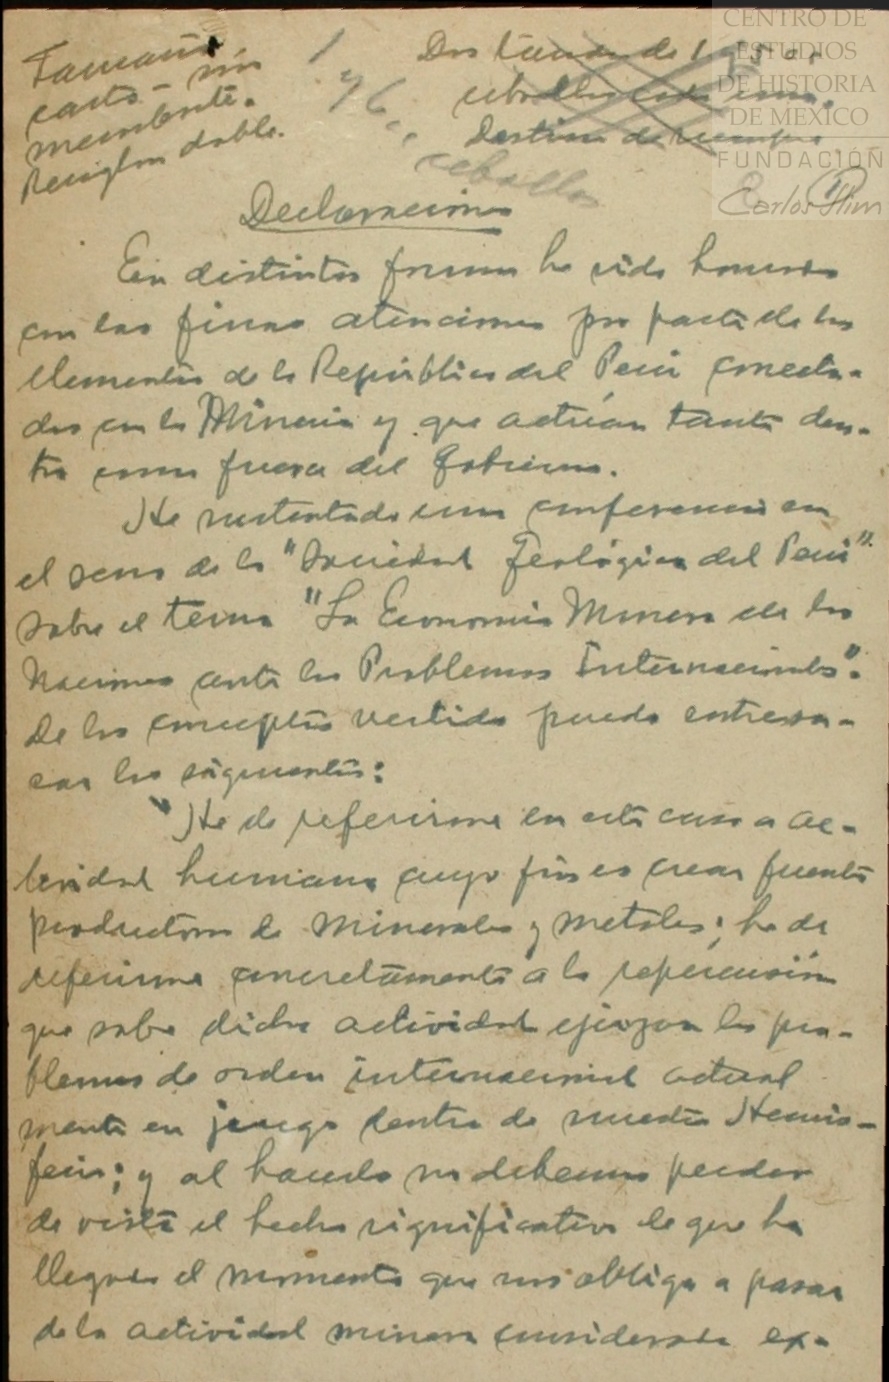 CENTRO DE
ESTUDIOS
DE HISTORIA
DE MÉXICO
FUNDACIÓN
Carlos Slim
Tamaño
carta - sin
membrete.
Renglon doble.
1 y 6
Declaraciones
En distintas formas he sido honrado
con las finas atenciones por parte de los
elementos de la República del Perú conecta-
dos con la Minería y que actúan tanto den-
tro como fuera del Gobierno.
He sustentado una conferencia en
el seno de la "Sociedad Geológica del Perú"
sobre el tema "La Economía Minera de las
Naciones ante los Problemas Internacionales".
De los conceptos vertidos puedo entresa-
car los siguientes:
"He de referirme en este caso a ac-
tividad humana cuyo fin es crear fuentes
productoras de minerales y metales; he de
referirme concretamente a la repercusión
que sobre dicha actividad ejerzan los pro-
blemas de orden internacional actual
mente en juego dentro de nuestro Hemis-
ferio; y al hacerlo no debemos perder
de vista el hecho significativo de que ha
llegado el momento que nos obliga a pasar
de la actividad minera considerada ex-